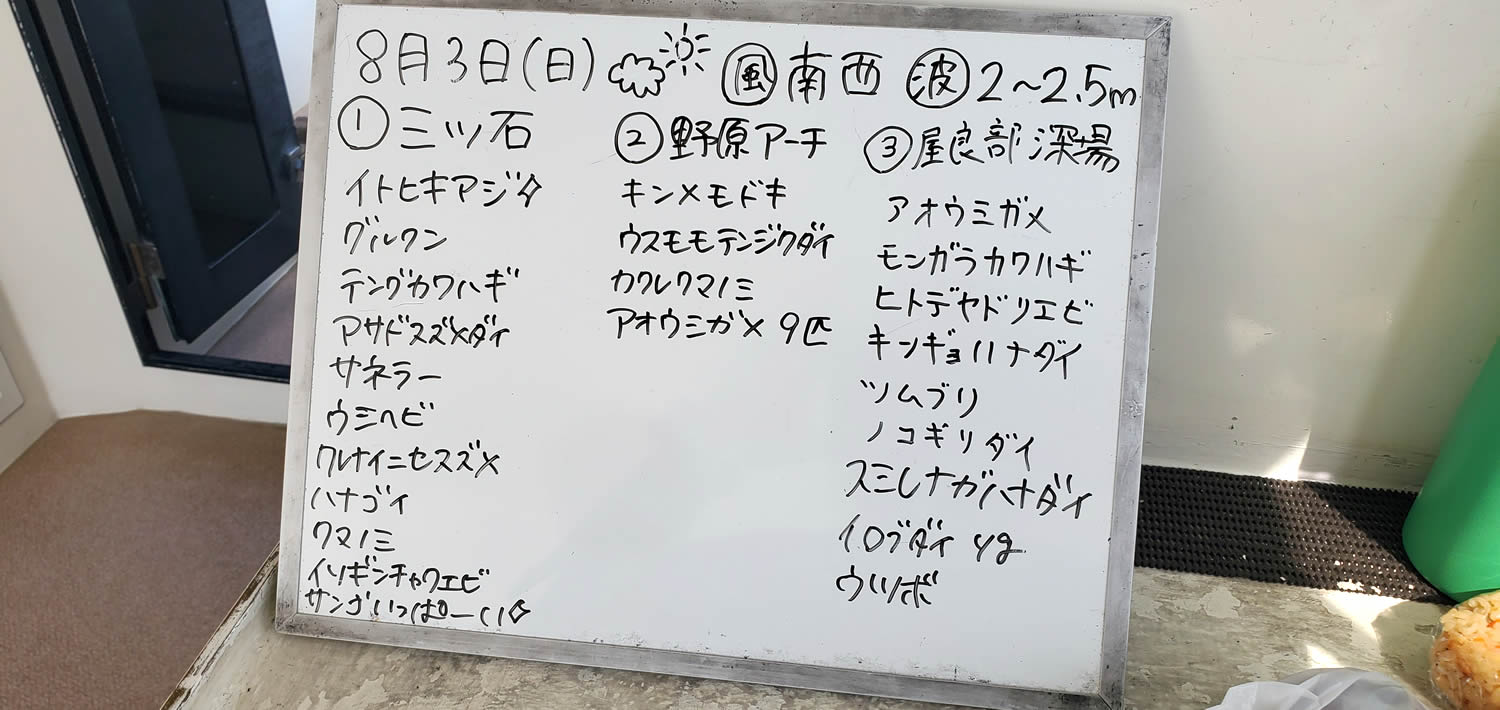 8月3日(日) 風 南西 波 2~2.5m
① 三ツ石
イトヒキアジ
グルクン
テングカワハギ
アサドスズメダイ
サネラー
ウミヘビ
クレナイニセスズメ
ハナゴイ
クマノミ
イソギンチャクエビ
サンゴいっぱーい
② 野原アーチ
キンメモドキ
ウスモモテンジクダイ
カクレクマノミ
アオウミガメ 9匹
③ 屋良部深場
アオウミガメ
モンガラカワハギ
ヒトデヤドリエビ
キンギョハナダイ
ツムブリ
ノコギリダイ
スミレナガハナダイ
イロブダイ yg
ウツボ